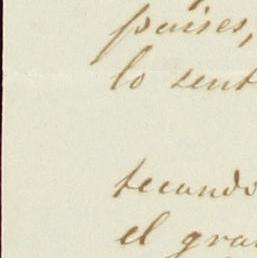 paises,
lo sent
tecundo
el gra